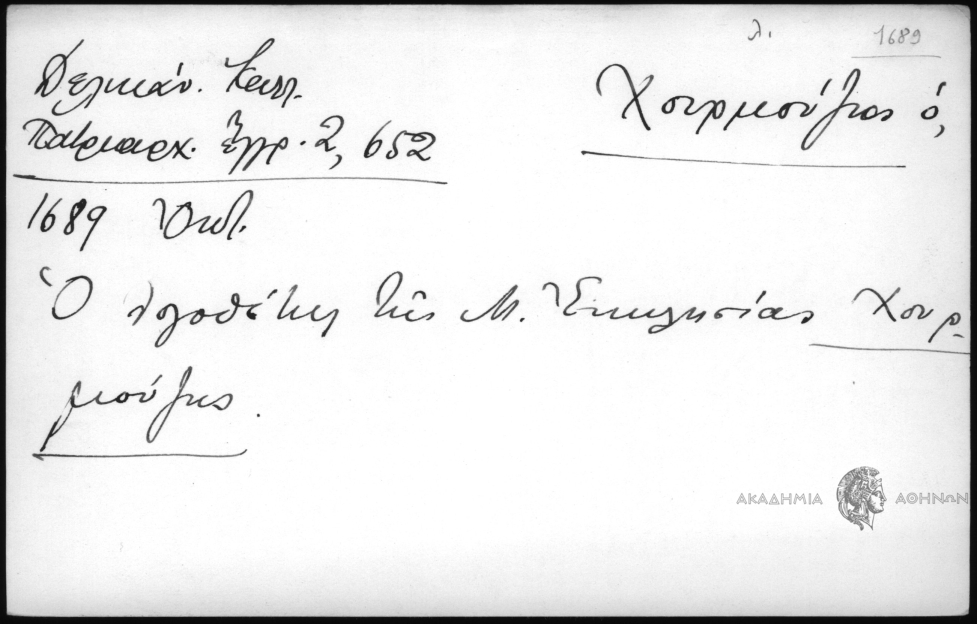 λ. 1689
Δελικάν. Κωνσ.
Πατριαρχ. Ἔγγρ. 2, 652
Χουρμούζιος ὁ,
1689 Ὀκτ.
Ὁ λογοθέτης τῆς Μ. Ἐκκλησίας Χουρ-
μούζης.
ΑΚΑΔΗΜΙΑ ΑΘΗΝΩΝ